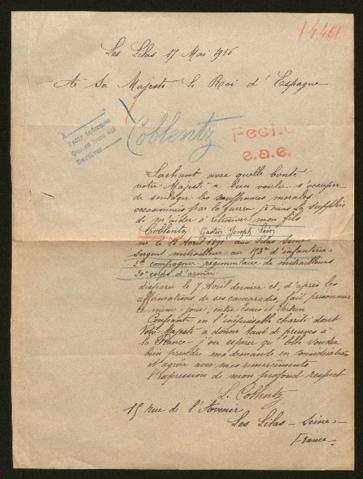 14461
Les Lilas 17 Mai 1916
A Sa Majesté Le Roi d'Espagne
Coblentz
Fecho
e.a.e.
Sachant avec quelle bonté
votre Majesté a bien voulu s'occuper
de soulager les souffrances morales
occasionnées par la guerre, je viens la supplier
de m'aider à retrouver mon fils
Coblentz Gaston Joseph
né le 18 Avril 1891 aux Lilas Seine
sergent mitrailleur au 173e d'infanterie
compagnie regimentaire de mitrailleurs
30e corps d'armée
disparu le 7 Avril dernier et, d'après les
affirmations de ses camarades, fait prisonnier
ce même jour, entre
Confiant en l'inépuisable charité dont
Votre Majesté a donné tant de preuves à
la France j'ose espérer qu'Elle voudra
bien prendre ma demande en considération
et agréer avec mes remerciements
l'expression de mon profond respect
L. Coblentz
15 rue de l'Avenir
Les Lilas - Seine -
France